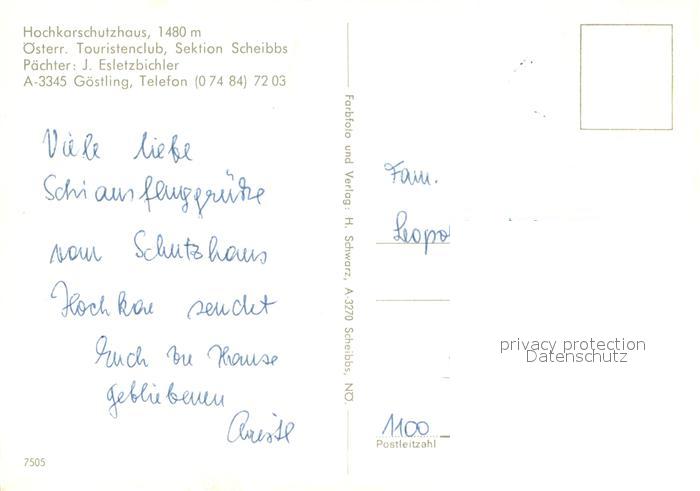 Hochkarschutzhaus, 1480 m
Österr. Touristenclub, Sektion Scheibbs
Pächter: J. Esletzbichler
A-3345 Göstling, Telefon (0 74 84) 72 03
Viele liebe
Schiausfluggrüße
vom Schutzhaus
Hochkar sendet
Euch zu Hause
gebliebenen
7505
Farbfoto und Verlag: H. Schwarz, A-3270 Scheibbs, NÖ.
Fam.
Leopo
1100
Postleitzahl
privacy protection
Datenschutz